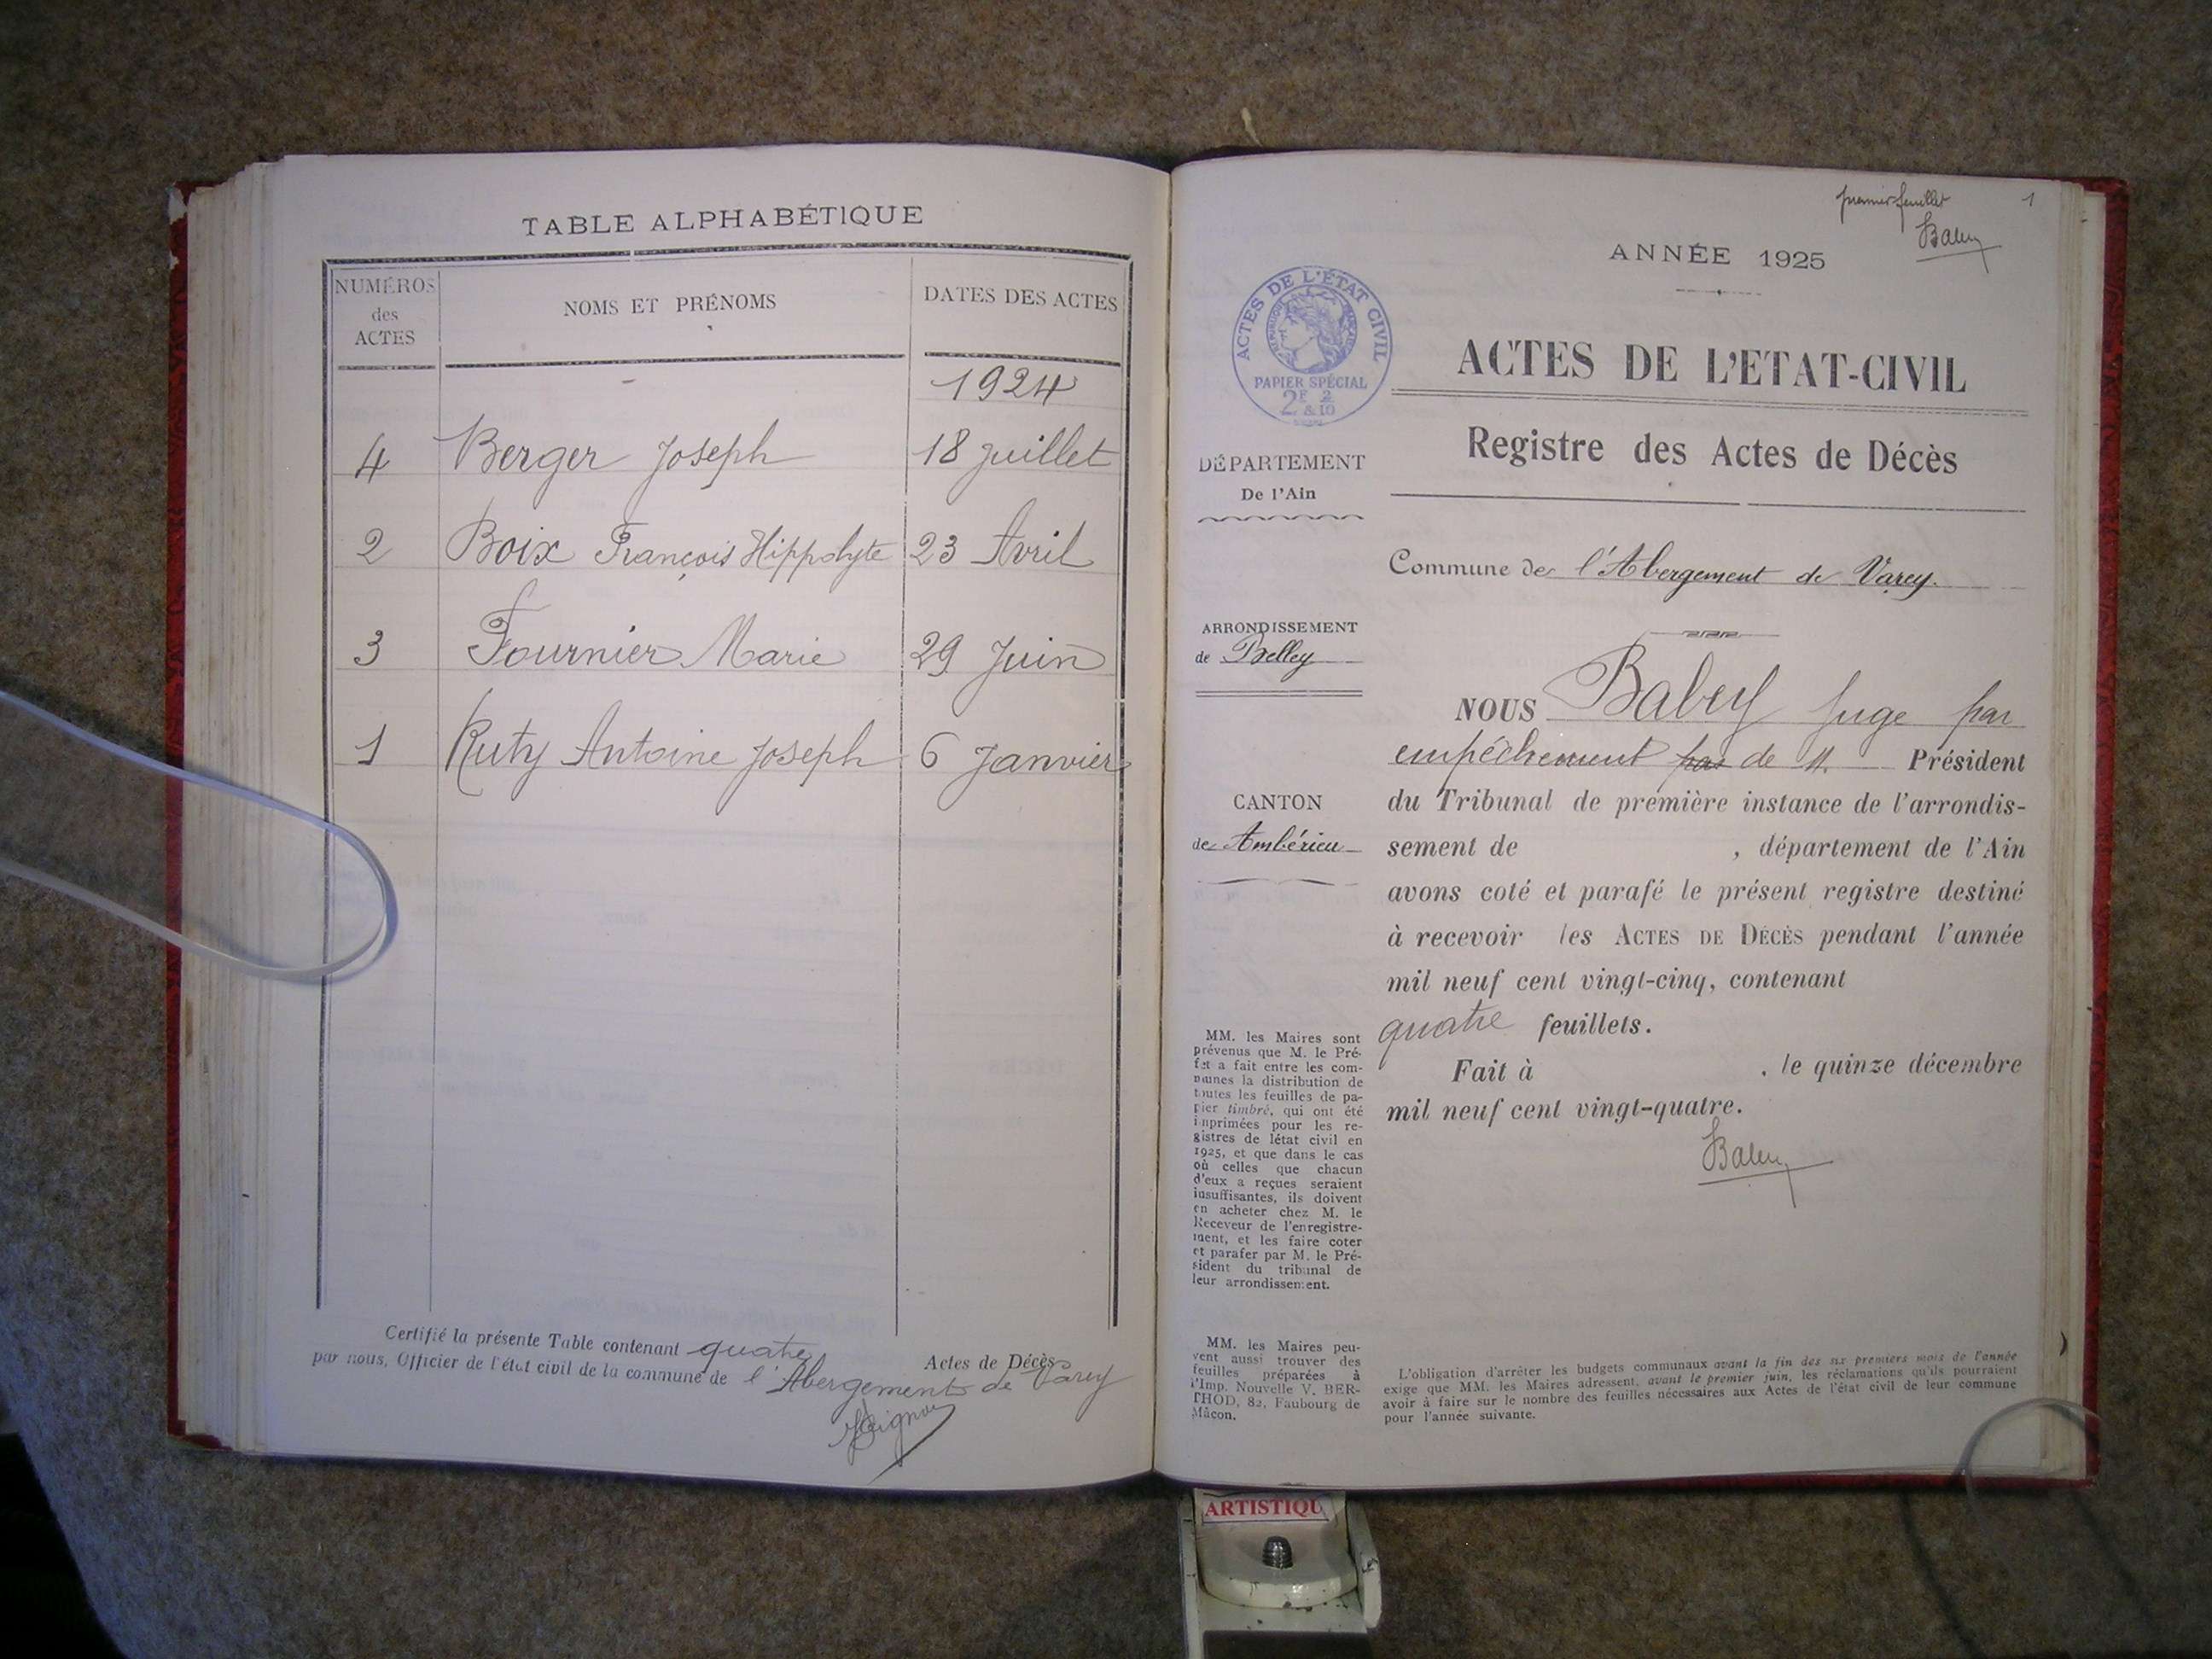 TABLE ALPHABÉTIQUE
NUMÉROS
des
ACTES
NOMS ET PRÉNOMS
DATES DES ACTES
1924
4 Berger Joseph 18 Juillet
2 Boix François Hippolyte 23 Avril
3 Fournier Marie 29 Juin
1 Ruty Antoine Joseph 6 Janvier
Certifié la présente Table contenant quatre Actes de Décès
par nous, Officier de l'état civil de la commune de l'Abergement de Varey
premier feuillet 1
ANNÉE 1925
ACTES DE L'ÉTAT CIVIL
RÉPUBLIQUE FRANÇAISE
PAPIER SPÉCIAL
2F 2
& 10
ACTES DE L'ETAT-CIVIL
Registre des Actes de Décès
DÉPARTEMENT
De l'Ain
Commune de l'Abergement de Varey.
ARRONDISSEMENT
de Belley
CANTON
de Ambérieu
NOUS Babey Juge par
empêchement par de M. Président
du Tribunal de première instance de l'arrondis-
sement de , département de l'Ain
avons coté et parafé le présent registre destiné
à recevoir les ACTES DE DÉCÈS pendant l'année
mil neuf cent vingt-cinq, contenant
quatre feuillets.
Fait à , le quinze décembre
mil neuf cent vingt-quatre.
MM. les Maires sont
prévenus que M. le Pré-
fet a fait entre les com-
munes la distribution de
toutes les feuilles de pa-
pier timbré, qui ont été
imprimées pour les re-
gistres de létat civil en
1925, et que dans le cas
où celles que chacun
d'eux a reçues seraient
insuffisantes, ils doivent
en acheter chez M. le
Receveur de l'enregistre-
ment, et les faire coter
et parafer par M. le Pré-
sident du tribunal de
leur arrondissement.
MM. les Maires peu-
vent aussi trouver des
feuilles préparées à
l'Imp. Nouvelle V. BER-
THOD, 82, Faubourg de
Mâcon.
L'obligation d'arrêter les budgets communaux avant la fin des six premiers mois de l'année
exige que MM. les Maires adressent, avant le premier juin, les réclamations qu'ils pourraient
avoir à faire sur le nombre des feuilles nécessaires aux Actes de l'état civil de leur commune
pour l'année suivante.
ARTISTIQU